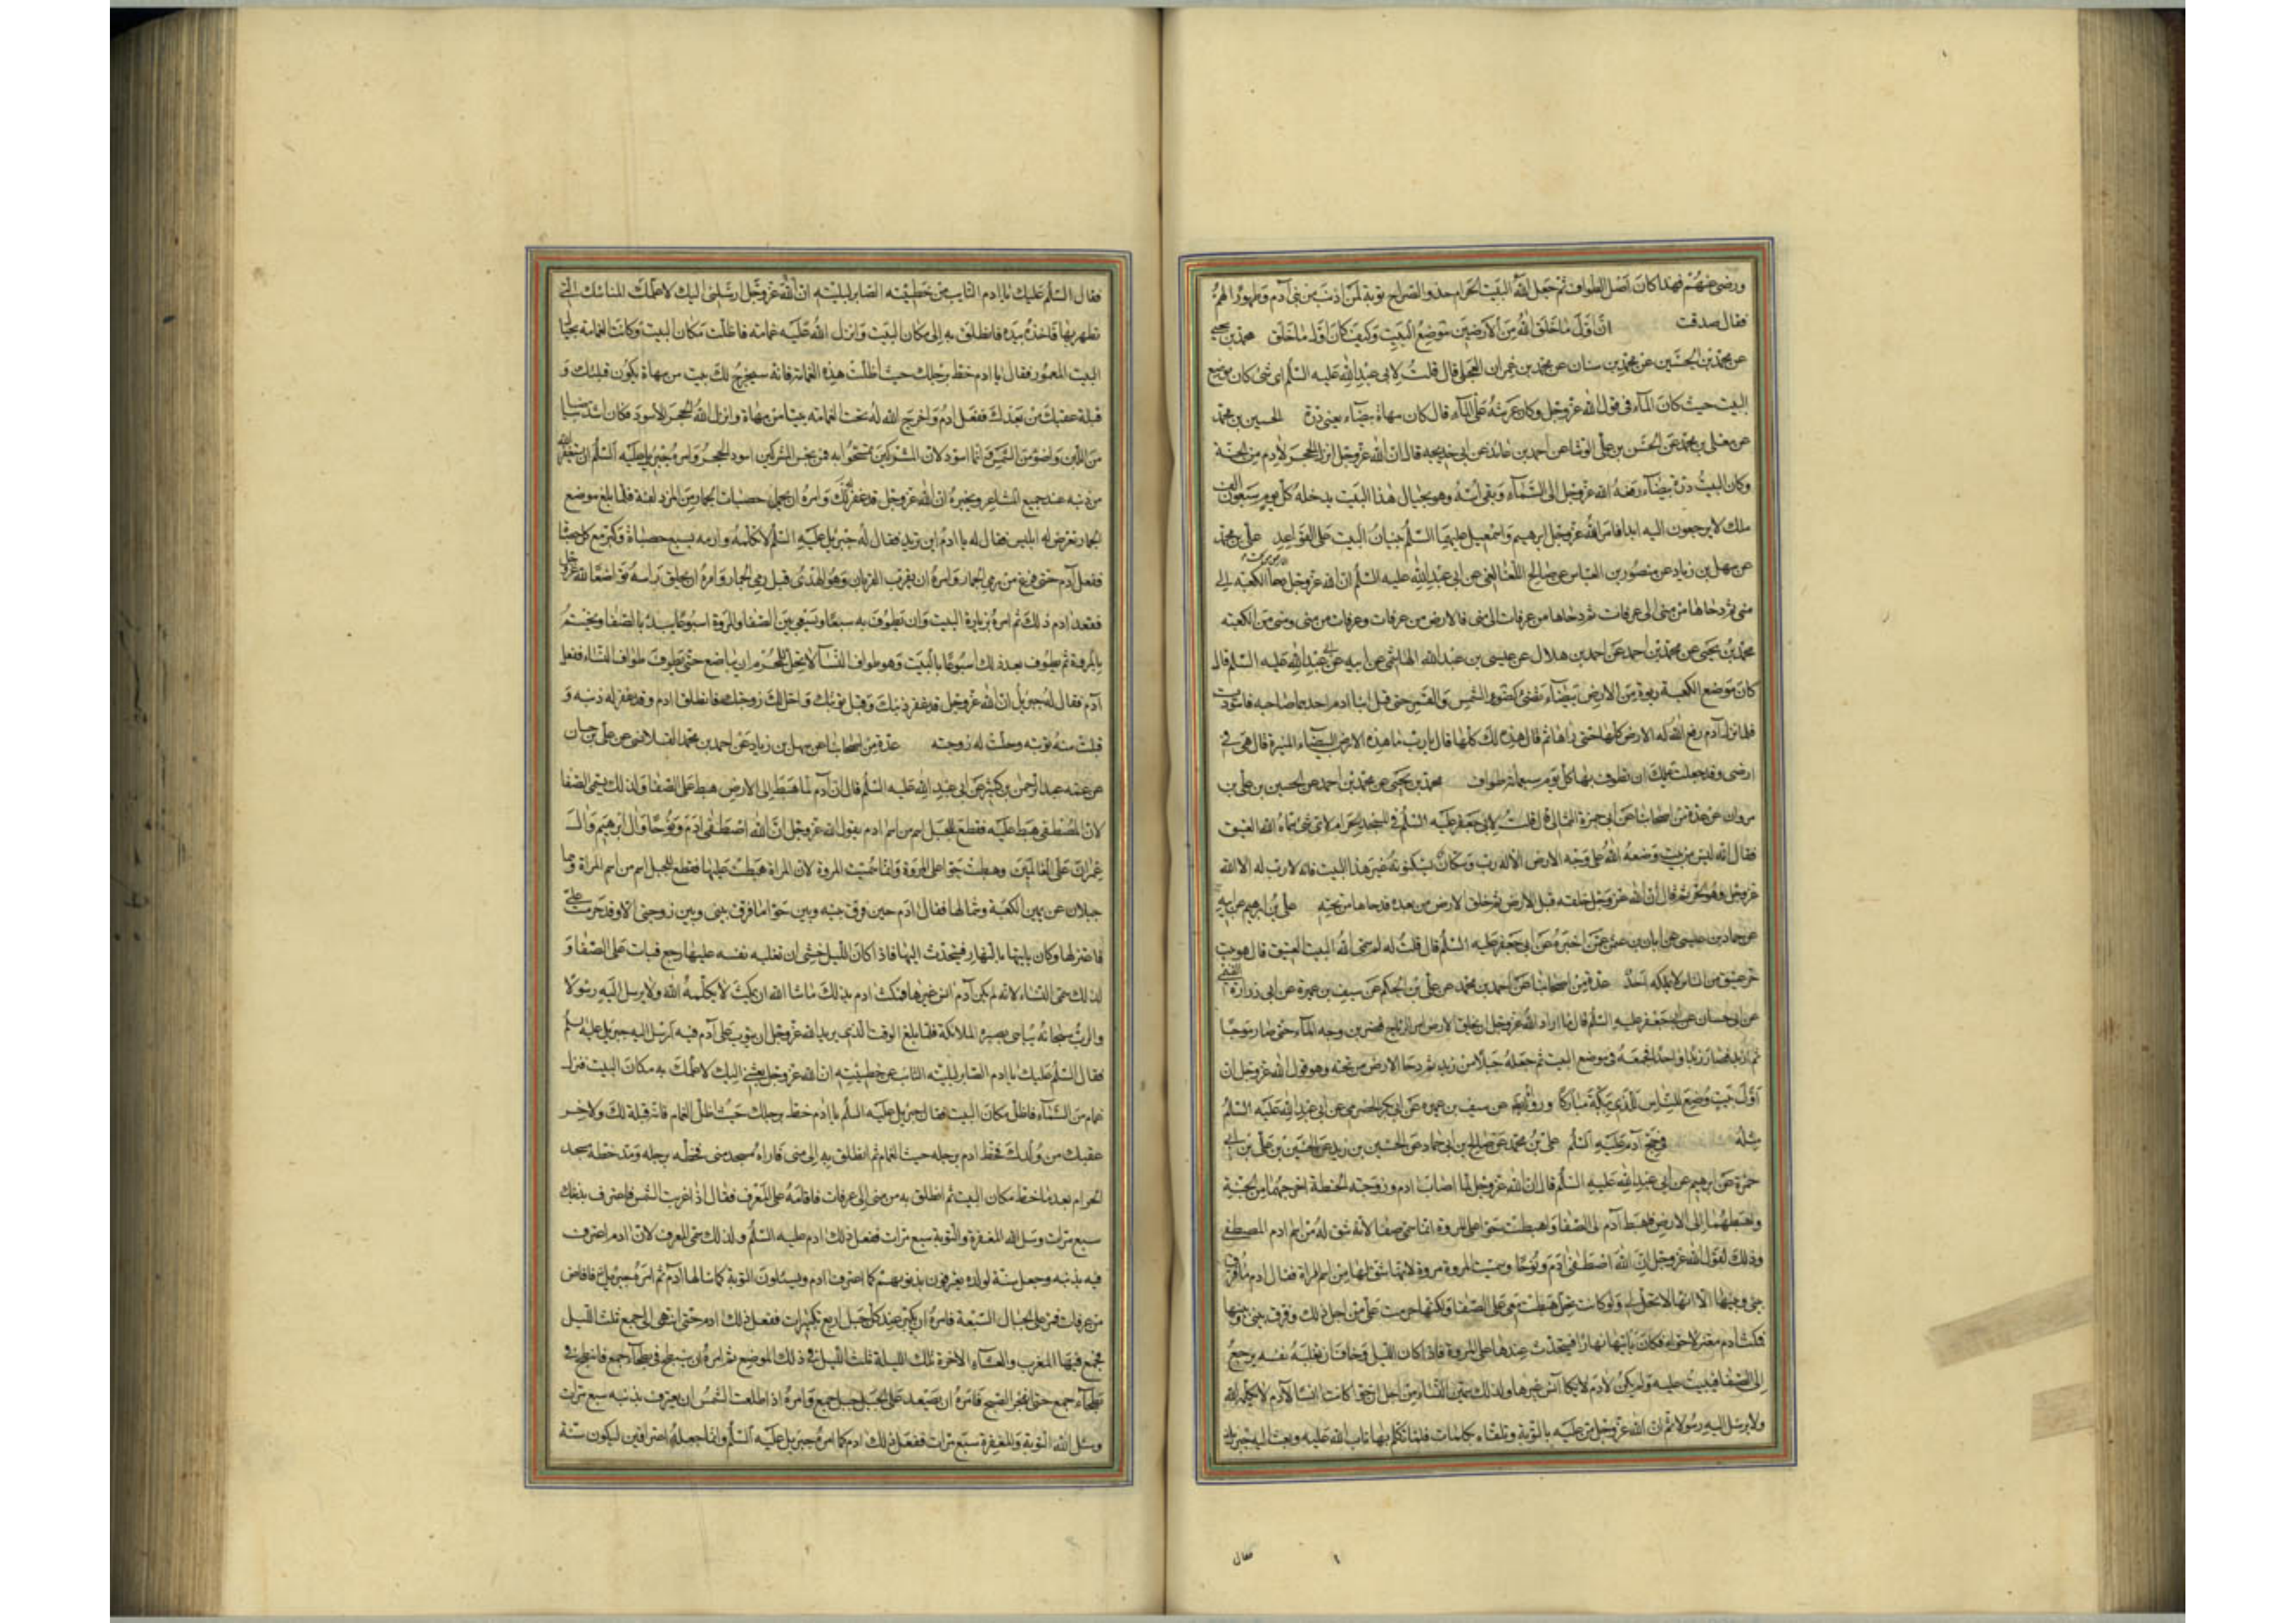 ورضي عنهم فهذا كان اصل الطواف ثم جعل الله البيت الحرام حذو الضراح توبة لمن اذنب من بني آدم وطهورا لهم
فقال صدقت ان اول ما خلق الله من الارضين موضع البيت وكيف كان اول ما خلق محمد بن يحيى
عن محمد بن الحسين عن محمد بن سنان عن محمد بن عمران العجلي قال قلت لابي عبد الله عليه السلم اى شئ كان موضع
البيت حيث كان المآء في قول الله عز وجل وكان عرشه على المآء قال كان مهاة بيضآء يعني درة الحسين بن محمد
عن معلى بن محمد عن الحسن بن علي الوشا عن احمد بن عائذ عن ابي خديجه قال ان الله عز وجل انزل الحجر لادم من الجنة
وكان البيت درة بيضآء رفعه الله عز وجل الى السمآء وبقي اسه وهو بحيال هذا البيت يدخله كل يوم سبعون الف
ملك لا يرجعون اليه ابدا فامر الله عز وجل ابرهيم واسمعيل عليهما السلم ببنيان البيت على القواعد علي بن محمد
عن سهل بن زياد عن منصور بن العباس عن صالح اللفائفي عن ابي عبد الله عليه السلم ان الله عز وجل دحا الكعبة الى
منى ثم دحاها من منى الى عرفات ثم دحاها من عرفات الى منى فالارض من عرفات وعرفات من منى ومنى من الكعبة
محمد بن يحيى عن محمد بن احمد عن احمد بن هلال عن عيسى بن عبد الله الهاشمي عن ابيه عن ابي عبد الله عليه السلم قال
كان موضع الكعبة ربوة من الارض بيضآء تضئ كضوء الشمس والقمر حتى قتل ابنا ادم احدهما صاحبه فاسودت
فلما نزل آدم رفع الله له الارض كلها حتى رآها ثم قال هذه لك كلها قال يا رب ما هذه الارض البيضاء المنيرة قال هي في
ارضي وقد جعلت عليك ان تطوف بها كل يوم سبعمائة طواف محمد بن يحيى عن محمد بن احمد عن الحسين بن علي بن
مروان عن عدة من اصحابنا عن ابي حمزة الثمالي قال قلت لابي جعفر عليه السلم في المسجد الحرام لاى شئ سماه الله العتيق
فقال انه ليس من بيت وضعه الله على وجه الارض الا له رب وسكان يسكنونه غير هذا البيت فانه لا رب له الا الله
عز وجل وهو الحر ثم قال ان الله عز وجل خلقه قبل الارض ثم خلق الارض من بعده فدحاها من تحته علي بن ابرهيم عن ابيه
عن حماد بن عيسى عن ابان بن عثمن عمن اخبره عن ابي جعفر عليه السلم قال قلت له لم سمى الله البيت العتيق قال هو بيت
حر عتيق من الناس لم يملكه احد عدة من اصحابنا عن احمد بن محمد عن علي بن الحكم عن سيف بن عميرة عن ابي زرارة التميمي
عن ابي حسان عن ابي جعفر عليه السلم قال لما اراد الله عز وجل ان يخلق الارض امر الرياح فضربن وجه المآء حتى صار موجا
ثم ازبد فصار زبدا واحدا فجمعه في موضع البيت ثم جعله جبلا من زبد ثم دحا الارض من تحته وهو قول الله عز وجل ان
اول بيت وضع للناس للذي ببكة مباركا ورواه ايضا عن سيف بن عميرة عن ابي بكر الحضرمي عن ابي عبد الله عليه السلم
مثله في حج آدم عليه السلم علي بن محمد عن صالح بن ابي حماد عن الحسين بن يزيد عن الحسن بن علي بن ابي
حمزة عن ابرهيم عن ابي عبد الله عليه السلم قال ان الله عز وجل لما اصاب ادم وزوجته الحنطة اخرجهما من الجنة
واهبطهما الى الارض فاهبط آدم على الصفا واهبطت حوا على المروة انما سمى صفا لانه شق له من اسم ادم المصطفى
وذلك لقول الله عز وجل ان الله اصطفى آدم ونوحا وسميت المروة مروة لانها شق لها من اسم المراة فقال ادم ما فرق
بيني وبينها الا انها لا تحل لي ولو كانت تحل هبطت معي على الصفا ولكنها حرمت علي من اجل ذلك وفرق بيني وبينها
فمكث ادم معتزلا حواء فكان ياتيها نهارا فيتحدث عندها على المروة فاذا كان الليل وخاف ان تغلبه نفسه يرجع
الى الصفا فيبيت عليه ولم يكن لادم انس غيرها ولذلك سمين النساء من اجل ان حوا كانت انسا لآدم لا يكلمه الله
ولا يرسل اليه رسولا ثم ان الله عز وجل من عليه بالتوبة وتلقاه بكلمات فلما تكلم بها تاب الله عليه وبعث اليه جبرئيل
فقال
فقال السلم عليك يا ادم التايب من خطيئته الصابر لبليته ان الله عز وجل ارسلني اليك لاعلمك المناسك التي
تطهر بها فاخذ بيده فانطلق به الى مكان البيت وانزل الله عليه غمامة فاظلت مكان البيت وكانت الغمامة بحيال
البيت المعمور فقال يا ادم خط برجلك حيث اظلت هذه الغمامة فانه سيخرج لك بيت من مهاة يكون قبلتك و
قبلة عقبك من بعدك ففعل ادم واخرج الله له تحت الغمامة بيتا من مهاة وانزل الله الحجر الاسود فكان اشد بياضا
من اللبن واضوء من الشمس وانما اسود لان المشركين تمسحوا به فمن نجس المشركين اسود الحجر وامره جبرئيل عليه السلم ان يستغفر الله
من ذنبه عند جميع المشاعر ويخبره ان الله عز وجل قد غفر لك وامره ان يحمل حصيات الجمار من المزدلفة فلما بلغ موضع
الجمار تعرض له ابليس فقال له يا ادم اين تريد فقال له جبرئيل عليه السلم لا تكلمه وارمه بسبع حصياة وكبر مع كل حصاة
ففعل آدم حتى فرغ من رمي الجمار وامره ان يقرب القربان وهو الهدى قبل رمي الجمار وامره ان يحلق راسه تواضعا لله عز وجل
ففعل ادم ذلك ثم امره بزيارة البيت وان يطوف به سبعا ويسعى بين الصفا والمروة اسبوعا يبدء بالصفا ويختم
بالمروة ثم يطوف بعد ذلك اسبوعا بالبيت وهو طواف النسآ لا يحل للمحرم ان يباضع حتى يطوف طواف النساء ففعل
آدم فقال له جبرئيل ان الله عز وجل قد غفر ذنبك وقبل توبتك واحل لك زوجتك فانطلق ادم وقد غفر له ذنبه و
قبلت منه توبته وحلت له زوجته عدة من اصحابنا عن سهل بن زياد عن احمد بن محمد القلانسي عن علي بن حسان
عن عمه عبد الرحمن بن كثير عن ابي عبد الله عليه السلم قال ان آدم لما هبط الى الارض هبط على الصفا ولذلك سمى الصفا
لان المصطفى هبط عليه فقطع للجبل اسم من اسم ادم بقول الله عز وجل ان الله اصطفى آدم ونوحا وآل ابرهيم وال
عمران على العالمين وهبطت حوا على المروة وانما سميت المروة لان المراة هبطت عليها فقطع للجبل اسم من اسم المراة وهما
جبلان عن يمين الكعبة وشمالها فقال ادم حين فرق بينه وبين حوا ما فرق بيني وبين زوجتي الا وقد حرمت علي
فاعتزلها وكان ياتيها بالنهار فيتحدث اليها فاذا كان الليل خشي ان تغلبه نفسه عليها رجع فبات على الصفا و
لذلك سمى النساء لانه لم يكن آدم انس غيرها فمكث ادم بذلك ما شا الله ان يمكث لا يكلمه الله ولا يرسل اليه رسولا
والرب سبحانه يباهي بصبره الملائكة فلما بلغ الوقت الذي يريد الله عز وجل ان يتوب على آدم فيه ارسل اليه جبرئيل عليه السلم
فقال السلم عليك يا ادم الصابر لبليته التائب عن خطيئته ان الله عز وجل بعثني اليك لاعلمك به مكان البيت فنزل
غمام من السمآء فاظل مكان البيت فقال جبرئيل عليه السلم يا ادم خط برجلك حيث اظل الغمام فانه قبلة لك ولاخر
عقبك من ولدك فخط ادم برجله حيث الغمام ثم انطلق به الى منى فاراه مسجد منى فخط برجله ومد خطة مسجد
الحرام بعد ما خط مكان البيت ثم انطلق به من منى الى عرفات فاقامه على المعرف فقال اذا غربت الشمس فاعترف بذنبك
سبع مرات وسل الله المغفرة والتوبة سبع مرات ففعل ذلك ادم عليه السلم ولذلك سمى المعرف لان ادم اعترف
فيه بذنبه وجعل سنة لولده يعترفون بذنوبهم كما اعترف ادم ويسئلون التوبة كما سالها آدم ثم امره جبرئيل فافاض
من عرفات فمر على الجبال السبعة فامره ان يكبر عند كل جبل اربع تكبيرات ففعل ذلك ادم حتى انتهى الى جمع ثلث الليل
فجمع فيها المغرب والعشاء الاخرة تلك الليلة ثلث الليل في ذلك الموضع ثم امره ان ينبطح في بطحآء جمع فانبطح في
بطحآء جمع حتى انفجر الصبح فامره ان يصعد على الجبل جبل جمع وامره اذا طلعت الشمس ان يعترف بذنبه سبع مرات
وسئل الله التوبة والمغفرة سبع مرات ففعل ذلك ادم كما امره جبرئيل عليه السلم وانما جعله اعترافين ليكون سنة